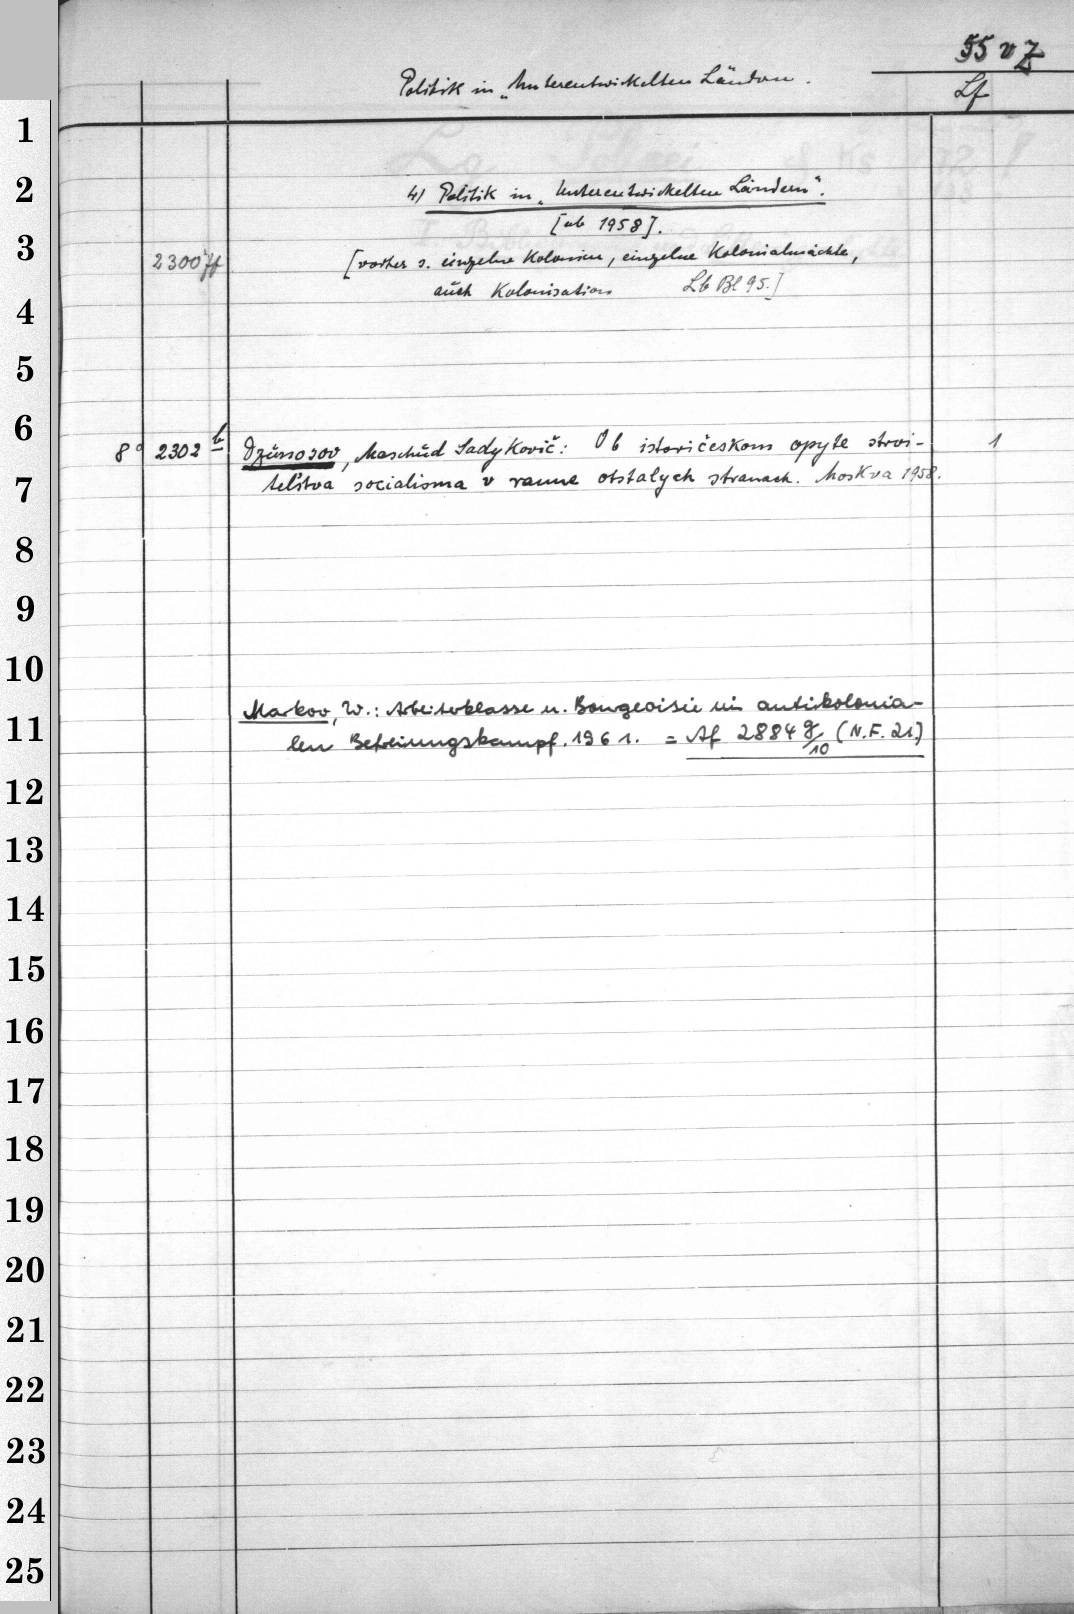 55 v Z
Politik in „Unterentwickelten Ländern.
Lf
4) Politik in „Unterentwickelten Ländern“.
[ab 1958].
2300 ff [vorher s. einzelne Kolonien, einzelne Kolonialmächte,
auch Kolonisation Lb Bl 95.]
8° 2302 b Džunosov, Maschúd Sadyković: Ob istoričeskom opyte stroi- 1
tel'stva socialisma v ranne otstalych stranach. Moskva 1958.
Markov, W.: Arbeiterklasse u. Bourgeoisie im antikolonia-
len Befreiungskampf. 1961. = Af 2884 g/10 (N.F. 21)
1
2
3
4
5
6
7
8
9
10
11
12
13
14
15
16
17
18
19
20
21
22
23
24
25